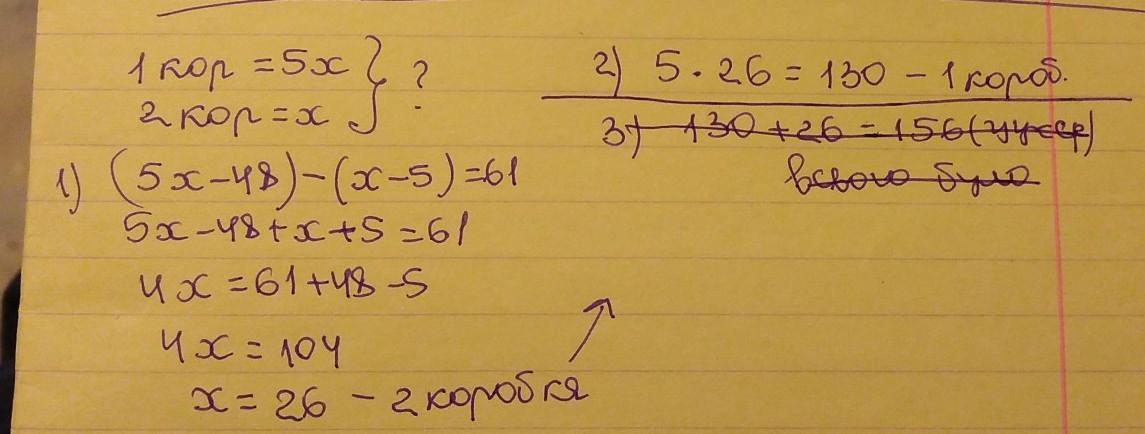 1 кор = 5x } ?
2 кор = x
1) (5x-48)-(x-5)=61
5x-48+x+5=61
4x=61+48-5
4x=104
x=26 - 2 коробкя
2) 5·26=130 - 1 короб.
3) 130+26=156
було